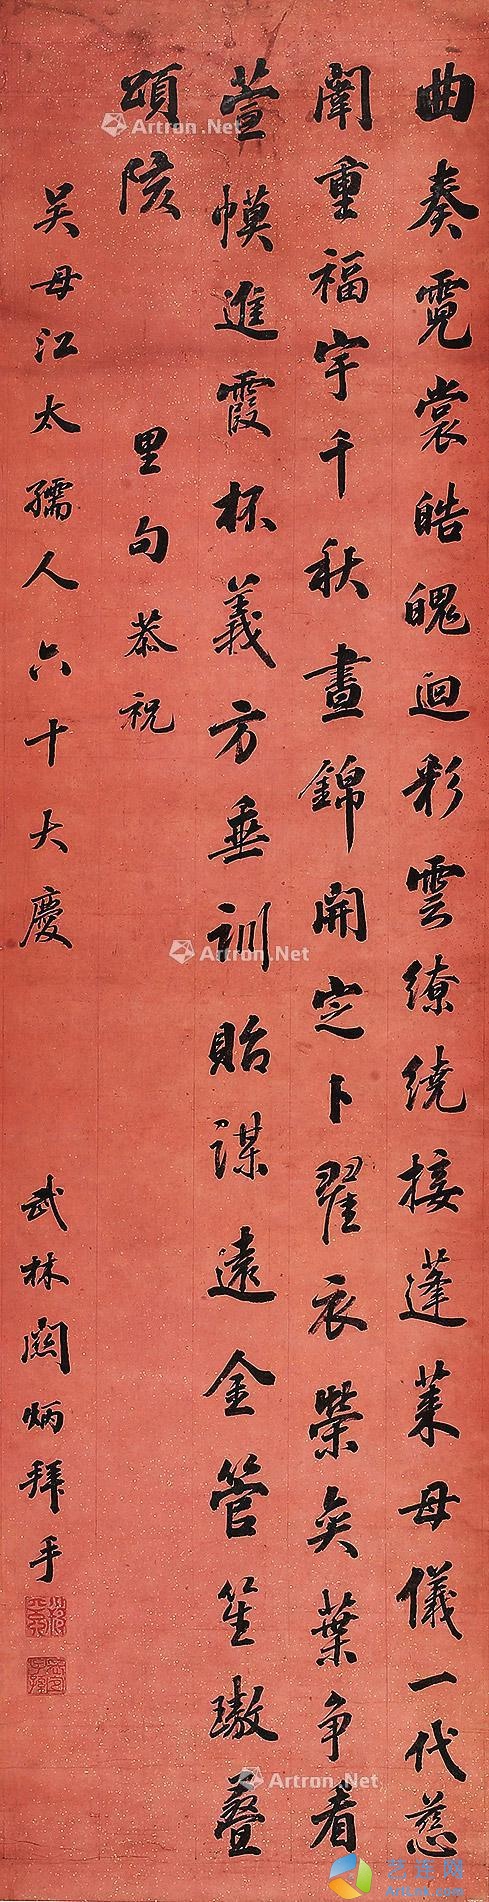 曲奏霓裳皓魄迴彩雲繚繞接蓬萊母儀一代慈
闈重福宇千秋晝錦開定卜翟衣榮奕葉争看
萱幙進霞杯義方垂訓貽謀遠金管笙璈疊
頌陔 里句恭祝
吴母江太孺人六十大慶 武林炳拜手
Artron.Net
Artron.Net
Artron.Net
艺连网